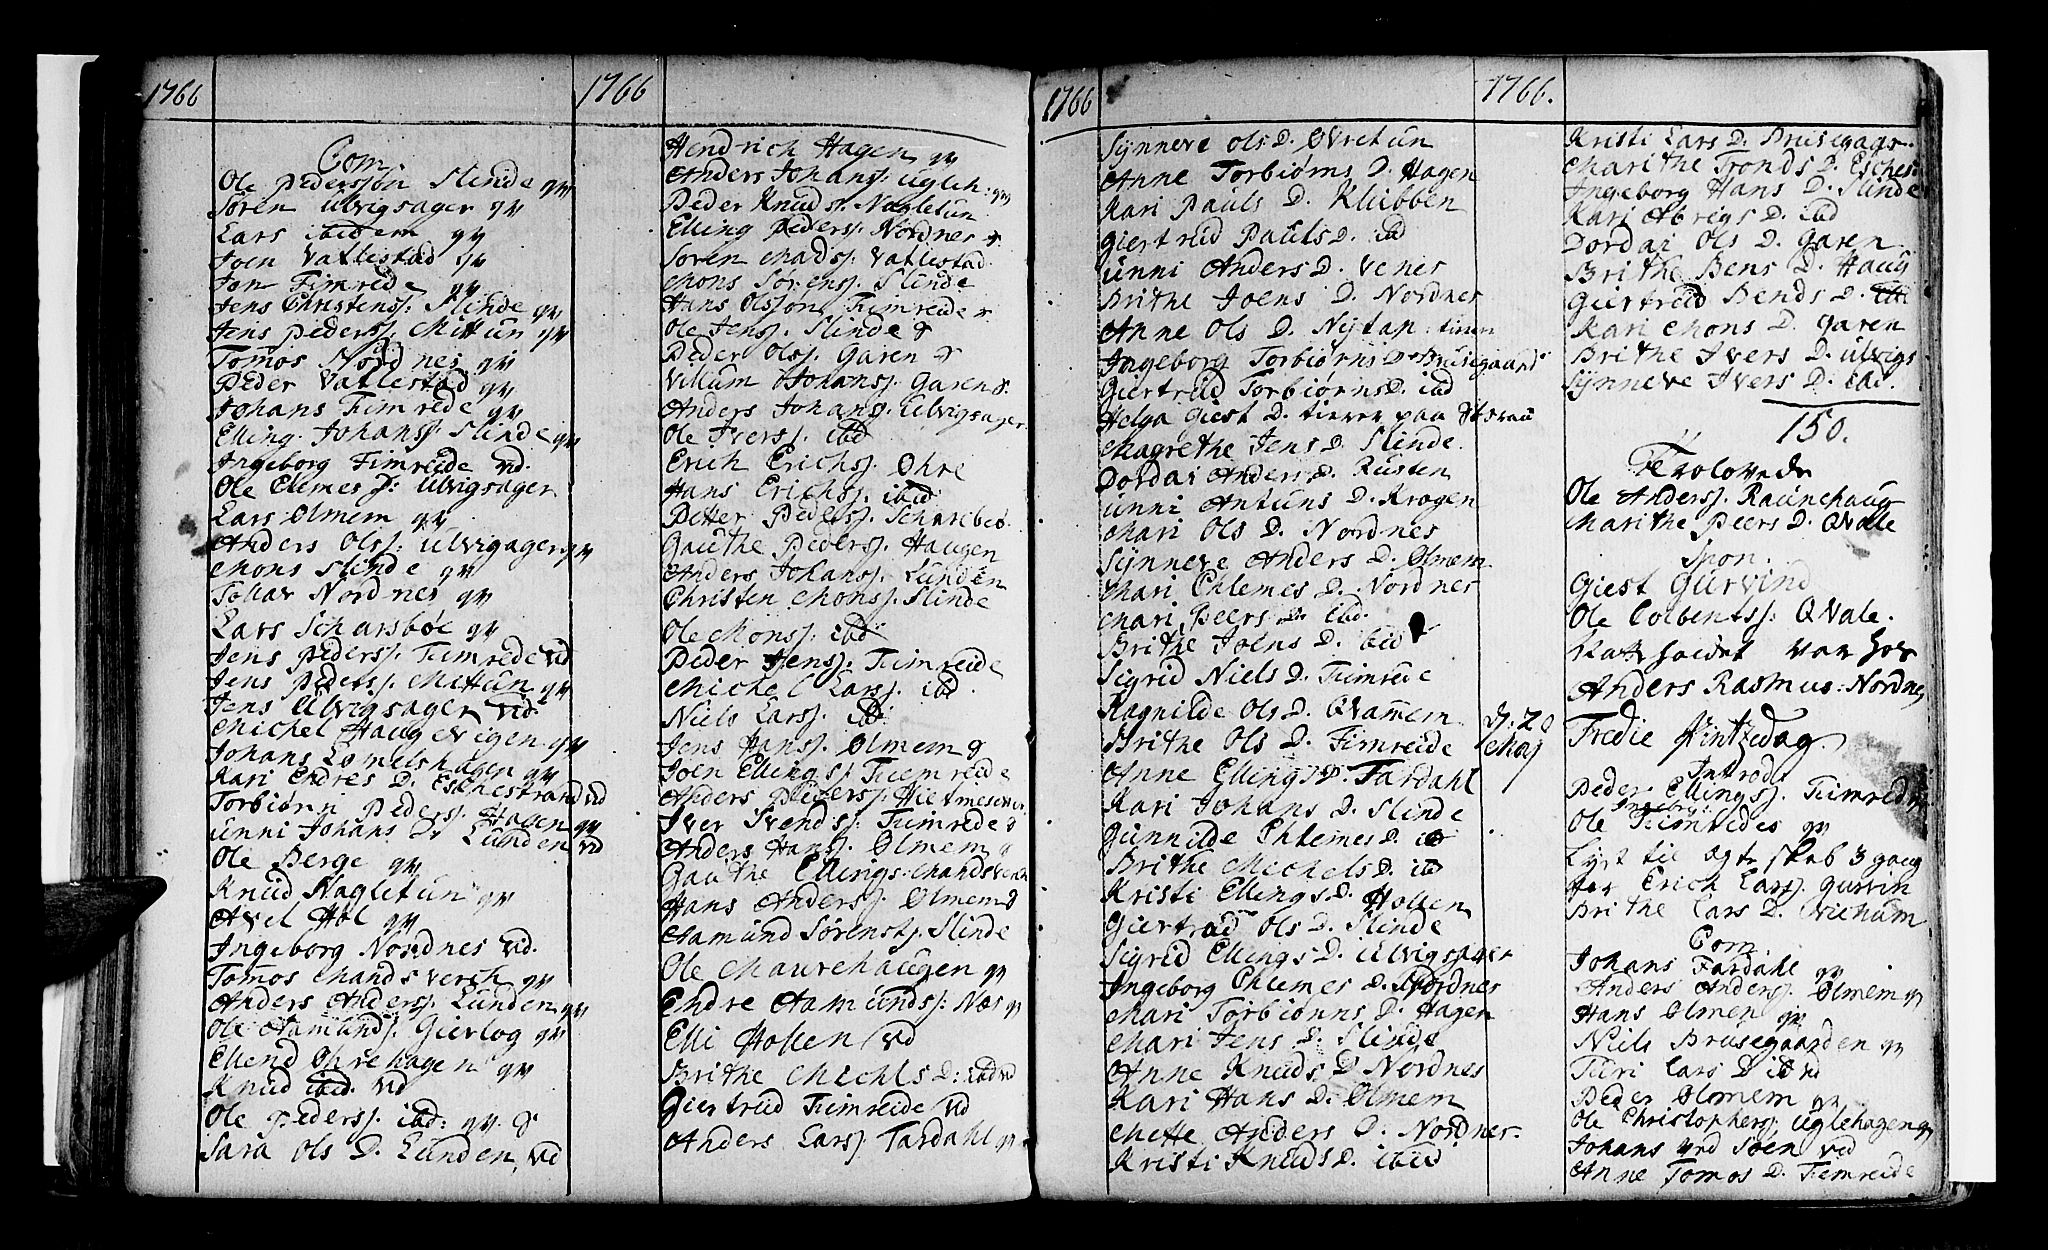 1766
Com.
Ole Pedersøn Slinde qv
Søren Ulvigsager qv
Lars ibidem qv
Joen Vatlestad qv
Jon Fimreide qv
Jens Christens: Slinde qv
Jens Pedersj. Mittun qv
Tomos Nordnes qv
Peder Vatlestad qv
Johans Fimrede qv
Elling Johansj. Slinde qv
Ingeborg Fimreide vd.
Ole Clemes D: Ulvigsager
Lars Olmem qv
Anders Olsj: Ulvigager qv
Mons Slinde qv
Nordnes qv
Lars Scharsbøe qv
Jens Pedersj. Fimrede vd
Jens Pedersj. Mittun qv
Jens Ulvigsager vd.
Michel Haugevigen qv
Johans Lomelshagen qv
Kari Endres D. Eschestrand vd
Torbiørn Pedersj. Hagen qv
Unni Johans D. Lunden vd
Ole Berge qv
Knud Nagletun qv
Axel Hol qv
Ingeborg Nordnes vd.
Tomos Mandsverch qv
Anders Andersj. Lunden qv
Ole Aamundsj. Gierlog qv
Ellend Ohrehagen qv
Knud ibd. vd
Ole Pedersj. ibd: qv.
Sara Ols D. Lunden, vd
1766
Hendrich Hagen qv
Anders Johansj. Ugleh: qv
Peder Knudsj. Nagletun
Elling Pedersj. Nordnes
Søren Madsj. Vatlestad.
Mons Sørensj. Slinde
Hans Olssøn Fimreide
Ole Jensj. Slinde
Peder Olsj. Garen
Villum Johansj. Garen
Anders Johansj. Ulvigsager
Ole Iversj. ibd
Erich Erichsj. Ohre
Hans Erichsj. ibid
Petter Pedersj. Scharsbø.
Gauthe Pedersj. Haugen
Anders Johansj. Lunden
Christen Monsj. Slinde
Ole Monsj: ibd
Peder Jensj. Fimreide
Michel Larsj. ibd.
Niels Larsj. ibd
Jens Hansj. Olmem
Joen Ellingsj. Fimreide
Anders Pedersj. Hietmeseter
Iver Svendsj. Fimrede
Anders Hansj. Olmem
Gauthe Ellings: Mandsverch
Hans Andersj. Olmem
Aamund Sørensj. Slinde
Ole Maurehaugen qv
Endre Aamundsj: Næs qv
Elli Holten vd
Brithe Michls D: ibd vd
Giertrud Fimreide vd
Anders Larsj Fardahl qv
1766
Synneve Ols D. Øvretun
Anne Torbiørns D. Hagen
Kari Pauls D. Klubben
Giertrud Pauls D. ibd
Unni Anders D. Venes
Brithe Joens D. Nordnes
Anne Ols D. Nytap: tiener
Ingeborg Torbiørns D. Brusegaard
Giertrud Torbiørns D. ibd
Helga Giest D. tiener paa Storau
Magrethe Jens D. Slinde.
Dordai Anders D. Rusten
Unni Antuns D. Krogen
Mari Ols D. Nordnes
Synneve Anders D. Olmem
Mari Chlemes D. Nordnes
Mari Peers D. ibd.
Brithe Joens D. ibid
Sigrid Niels D. Fimrede
Ragnilde Ols D. Qvamem
Brithe Ols D. Fimreide
Anne Ellings D. Fardahl
Kari Johans D. Slinde
Gunnilde Chlemes D. ibd
Brithe Michels D. ibd
Kristi Ellings D. Holten
Giertrud Ols D. Slinde
Sigrid Ellings D. Ulvigsager
Ingeborg Chlemes D. Nordnes
Mari Torbiørns D. Hagen
Mari Jens D. Slinde
Anne Knuds D. Nordnes
Kari Hans D. Olmem
Mette Anders D. Nordnes.
Kristi Knuds D. ibid
1766.
D: 20
Maj
Kristi Lars D. Brusegaar.
Marithe Tronds D. Esches:
Ingeborg Hans D. Slinde
Kari Abrigs D. ibd
Dordai Ols D. Garen
Brithe Bens D. Haug
Giertrud Bends D. ibi
Kari Mons D. Garen
Brithe Ivers D. Ulvigs
Synneve Ivers D. ibd.
150.
Trolovede
Ole Andersj. Raunehaug
Marithe Peers D. Qvale
Spon.
Giest Gurvind
Ole Colbentsj: Qvale.
var hos
Anders Rasmus: Nordnes
Tredie Pintzedag.
Introd:
Peder Ellingsj. Fimreides
Ingebr:
Ole Fimreides qv
Lyst til Egteskab 3 gang
for Erich Larsj. Gurvin
Brithe Lars D. Vichum
Com.
Johans Fardahl qv
Anders Andersj. Olmem qv
Hans Olmen qv
Niels Brusegaarden qv
Turi Lars D ib vd
Peder Olmem qv
Ole Christophersj. Uglehagen qv
Johans Soen vd
Anne Tomos D. Fimreide